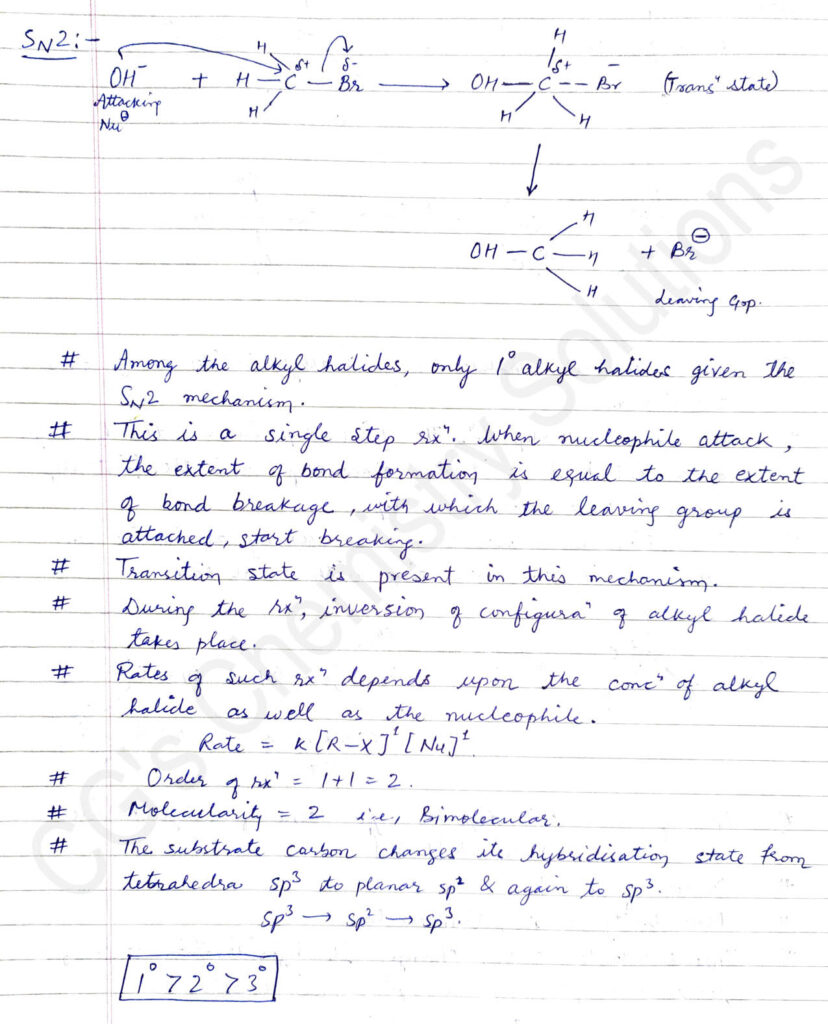 SN2:-
H
H
δ+
δ-
OH⁻ + H — C — Br ⟶ OH — C -- Br⁻ (Transⁿ state)
δ+
Attacking
Nu⊖
H
H
H
H
OH — C — H + Br⊖
H
Leaving Grp.
# Among the alkyl halides, only 1° alkyl halides given the
SN2 mechanism.
# This is a single step rxⁿ. When nucleophile attack,
the extent of bond formation is equal to the extent
of bond breakage, with which the leaving group is
attached, start breaking.
# Transition state is present in this mechanism.
# During the rxⁿ, inversion of configuraⁿ of alkyl halide
takes place.
# Rates of such rxⁿ depends upon the concⁿ of alkyl
halide as well as the nucleophile.
Rate = K [R-X]¹ [Nu]¹
# Order of rxⁿ = 1+1 = 2.
# Molecularity = 2 i.e, Bimolecular.
# The substrate carbon changes its hybridisation state from
tetrahedra sp³ to planar sp² & again to sp³.
sp³ → sp² → sp³.
1° > 2° > 3°
CG's Chemistry Solutions